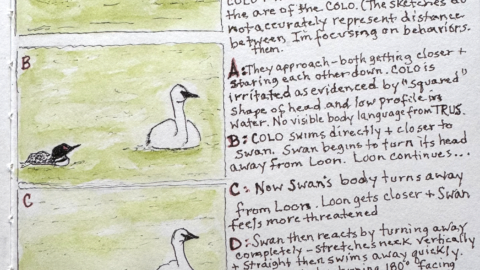 the are of the COLO. (The sketches do
not accurately represent distance
between. Im focusing on behaviors.
them.
B
A: They approach - both getting closer +
staring each other down. COLO is
irritated as evidenced by "squared"
shape of head and low profile in
water. No visible body language from TRUS.
B: COLO swims directly + closer to
Swan. Swan begins to turn its head
away from Loon. Loon continues...
C
C: Now Swan's body turns away
from Loon. Loon gets closer + Swan
feels more threatened
D: Swan then reacts by turning away
completely - stretches neck vertically
+ straight then swims away quickly.
180° facing